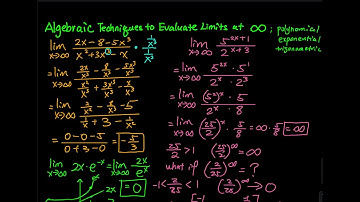 Algebraic Techniques to Evaluate Limits at ∞ ; polynomial
exponential
trigonometric
lim x→∞ (2x-8-5x³)/(x²+3x³-x) · (1/x³)/(1/x³)
= lim x→∞ (2x/x³ - 8/x³ - 5x³/x³)/(x²/x³ + 3x³/x³ - x/x³)
= lim x→∞ (2/x² - 8/x³ - 5)/(1/x + 3 - 1/x²)
= (0-0-5)/(0+3-0) = -5/3
lim x→∞ 2x·e^-x = lim x→∞ 2x/e^x
= 0
lim x→∞ 5^(2x+1)/2^(x+3)
= lim x→∞ (5^2x · 5^1)/(2^x · 2^3)
= lim x→∞ ((5²)^x · 5)/(2^x · 8)
= lim x→∞ (25/2)^x · 5/8 = ∞ · 5/8 = ∞
25/2 > 1 (25/2)^∞ = ∞
what if (2/25)^∞ = ?
-1 < 2/25 < 1 (2/25)^∞ → 0